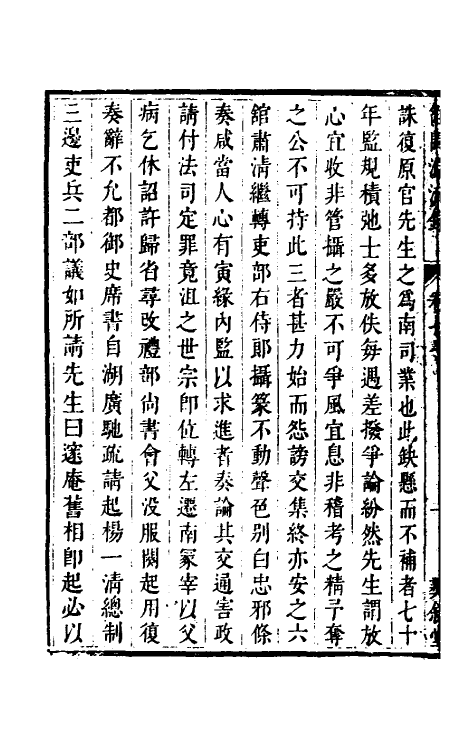 誅復原官先生之爲南司業也此缺懸而不補者七十
年監規積弛士多放佚每遇差撥爭論紛然先生謂放
心宜收非管攝之嚴不可爭風宜息非稽考之精予奪
之公不可持此三者甚力始而怨謗交集終亦安之六
館肅清繼轉吏部右侍郎攝篆不動聲色别白忠邪條
奏咸當人心有寅緣內監以求進者奏論其交通害政
請付法司定罪竟沮之世宗卽位轉左遷南冢宰以父
病乞休詔許歸省尋改禮部尚書會父没服闋起用復
奏辭不允都御史席書自湖廣馳疏請起楊一清總制
三邊吏兵二部議如所請先生曰邃庵舊相卽起必以